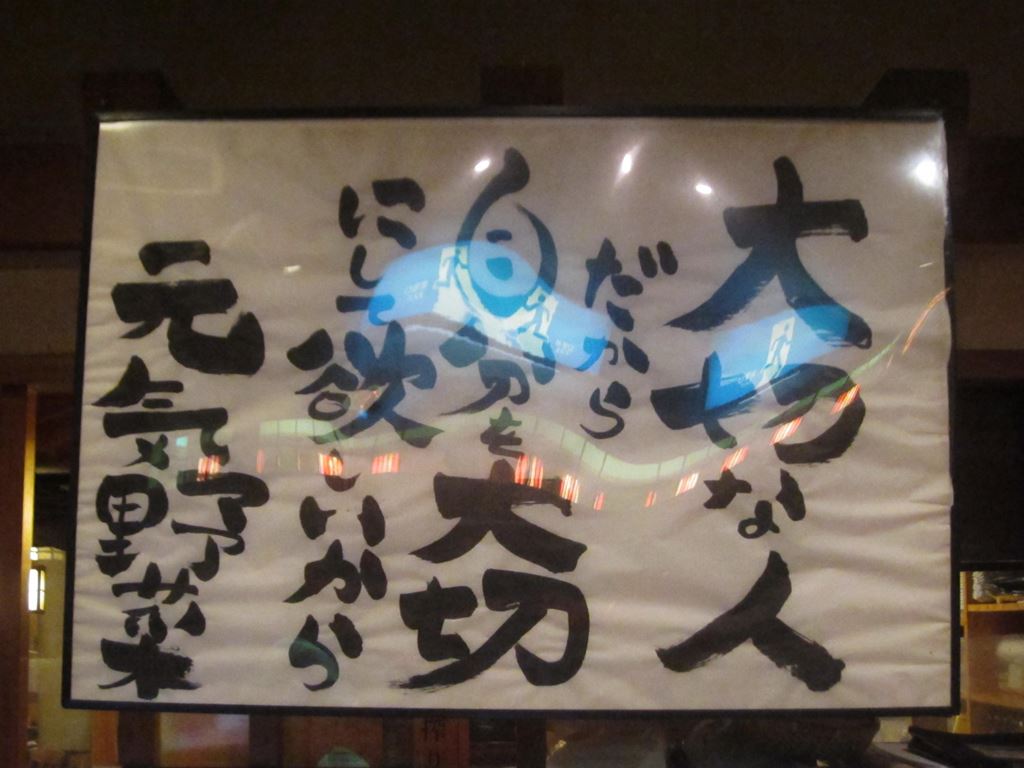 大切な人
だから
自分も大切
にして欲しいから
元気野菜